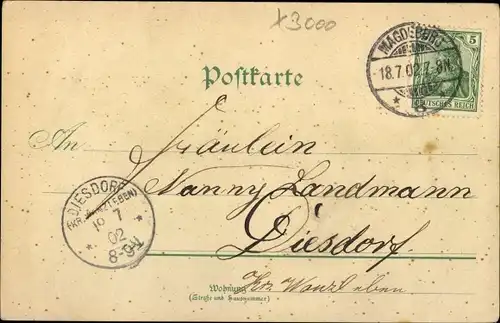 x3000
MAGDEBURG
18.7.02.7-8N.
* 8
5
DEUTSCHES REICH
Postkarte
An Fräulein
Nanny Landmann
DIESDORF
(KR. WANZLEBEN)
19 7
02
8-9V
Diesdorf.
Wohnung
(Straße und Hausnummer)
Krs Wanzleben